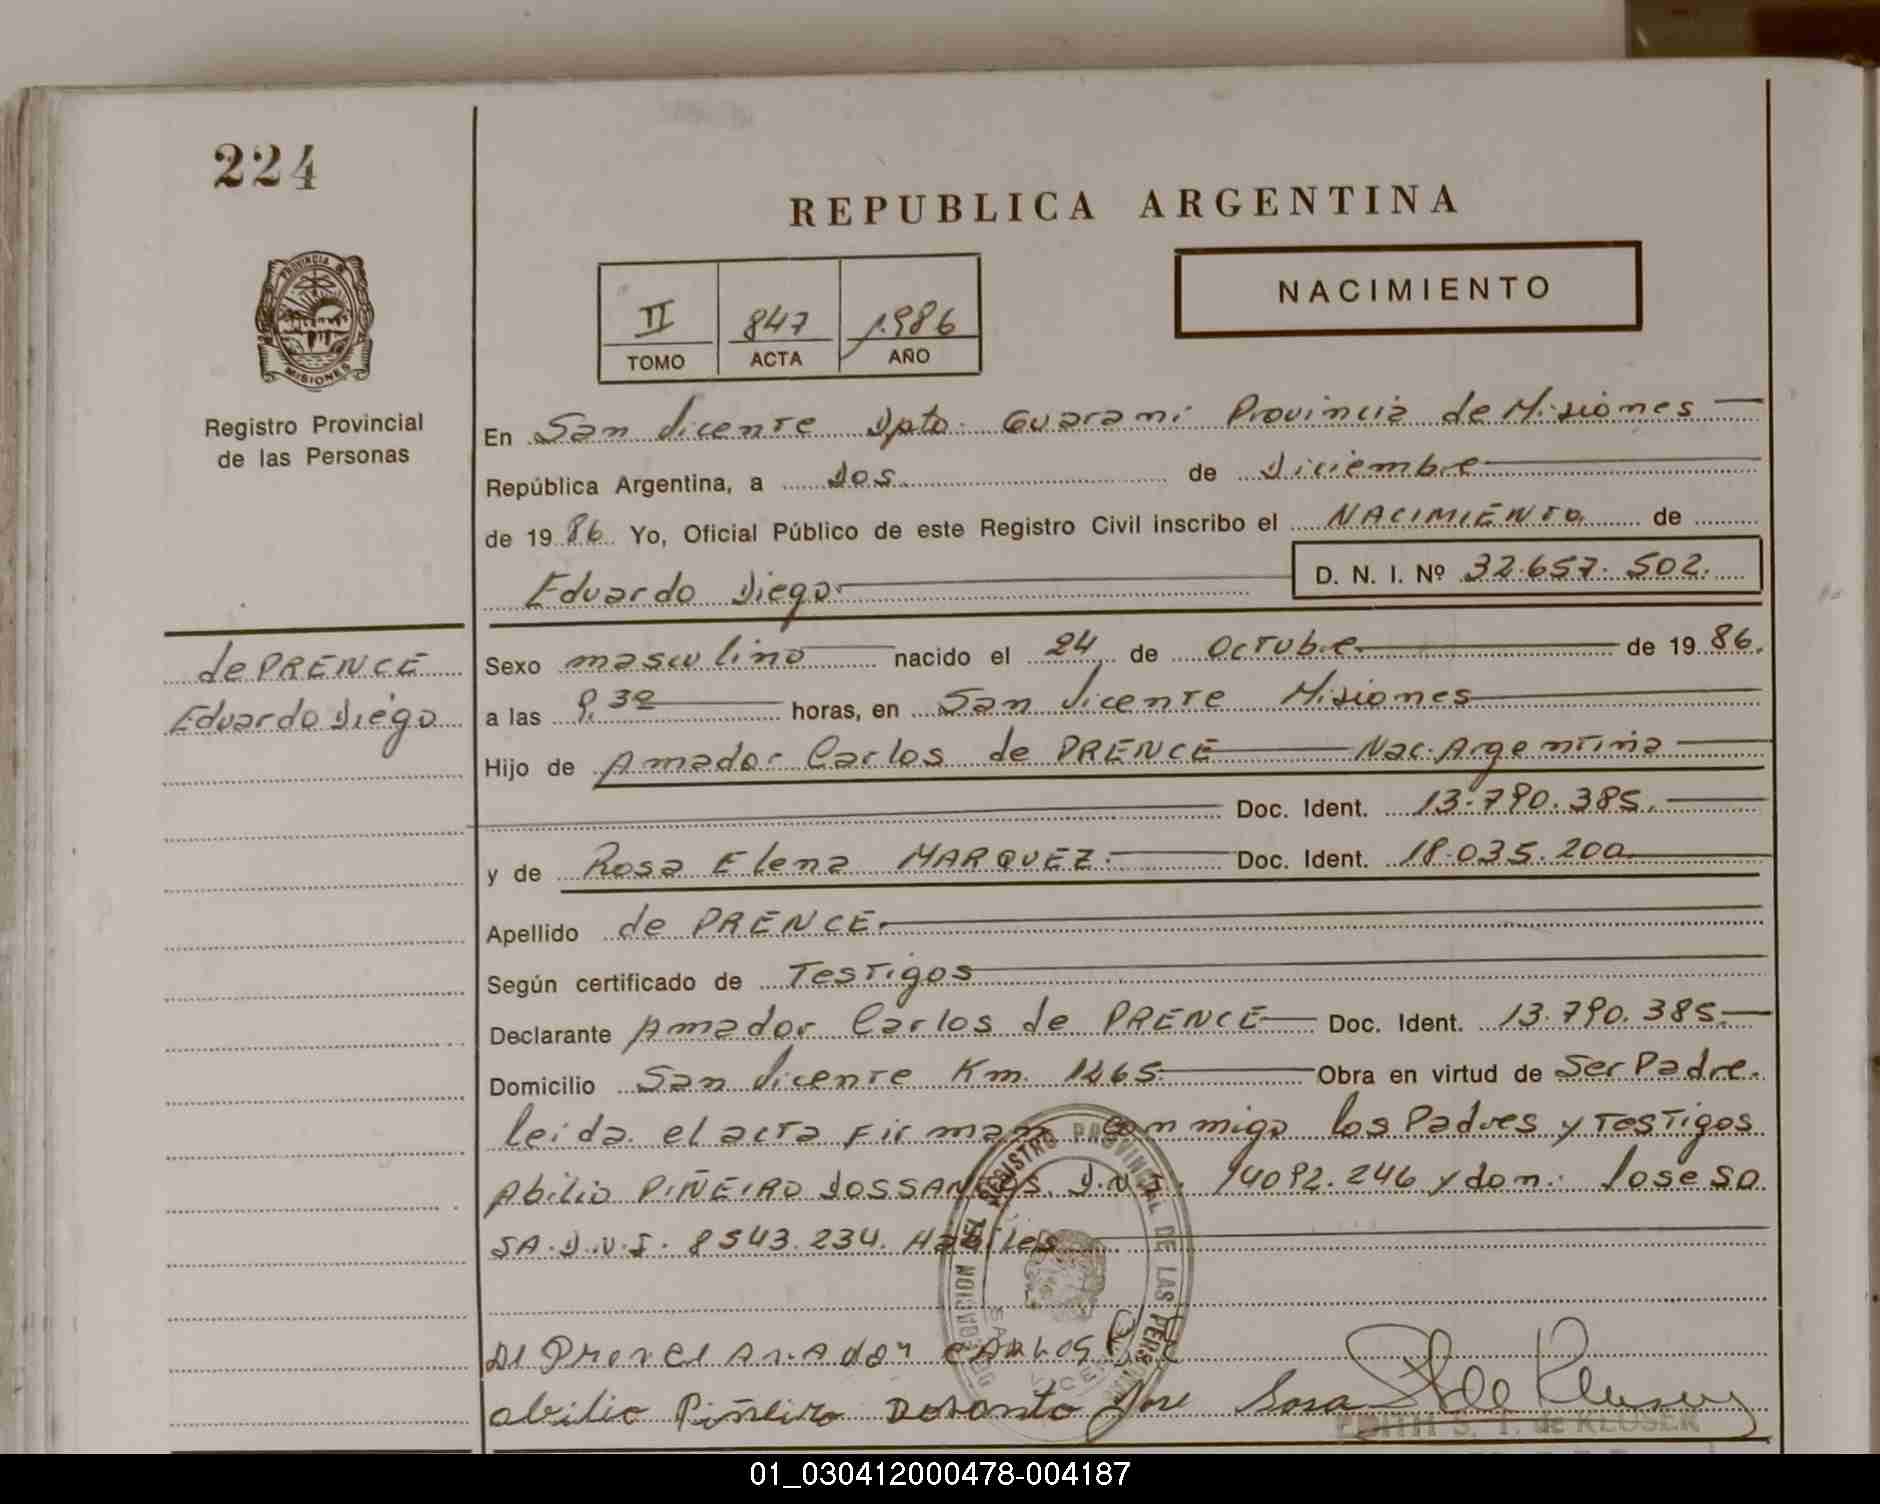 224
REPUBLICA ARGENTINA
NACIMIENTO
II 847 1986
TOMO ACTA AÑO
PROVINCIA DE MISIONES
Registro Provincial
de las Personas
En San Vicente Dpto. Guarani Provincia de Misiones
República Argentina, a Dos de Diciembre
de 1986. Yo, Oficial Público de este Registro Civil inscribo el NACIMIENTO de
Eduardo Diego D. N. I. Nº 32.657.502.
de PRENCE
Eduardo Diego
Sexo masculino nacido el 24 de Octubre de 1986.
a las 9,30 horas, en San Vicente Misiones
Hijo de Amador Carlos de PRENCE Nac. Argentina
Doc. Ident. 13.790.385.
y de Rosa Elena MARQUEZ. Doc. Ident. 18.035.200
Apellido de PRENCE.
Según certificado de Testigos
Declarante Amador Carlos de PRENCE Doc. Ident. 13.790.385.
Domicilio San Vicente Km. 1265 Obra en virtud de Ser Padre.
leida el acta Firman conmigo los Padres y Testigos
Abilio PIÑEIRO DOSSANTOS D.N.I. 14092.246 y don: Jose SO
SA. D.N.I. 8543.234. Habiles
REGISTRO PROVINCIAL DE LAS PERSONAS
De Prence Amador CARLOS
abilio Piñeiro Dosanto Jose Sosa
EDITH S. T. de KLUSER
01_030412000478-004187